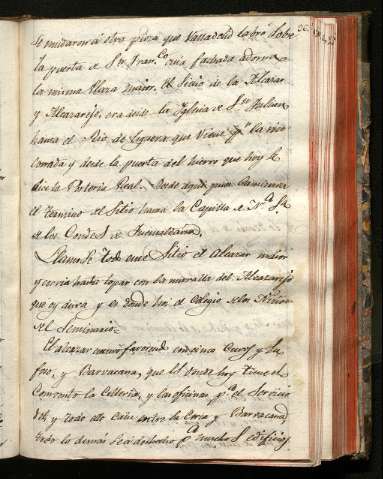 se mudaron á otra pieza que Valladolid labró sobre
la puerta de Sn. Fran.co cuia fachada adorna
la misma Plaza maior. El Sitio de la Alcazar
y Alcazarejo, era desde la Iglesia de Sn. Julian
hasta el Rio de Esgueva que Viene pr. la rin
conada y desde la puerta del hierro que hoy se
dice la Porteria Real. desde aquí
el termino del Sitio hasta la Capilla de N.a S.a
de los Condes de Fuensaldaña.
Llamose todo este Sitio el Alcazar maior
y corria hasta topar con la muralla del Alcazarejo
que oy dura y es donde hoi el Colegio de los Niños
del Seminario.
El alcazar con cinco Cuvos y Su
foso, y Barvacana, que es donde hoy tiene el
Convento la Cilleria, y las oficinas pa. el Servicio
del y todo esto cabe entre la Cerca y Barvacana,
todo lo demás se ha deshecho pa. muchos edificios